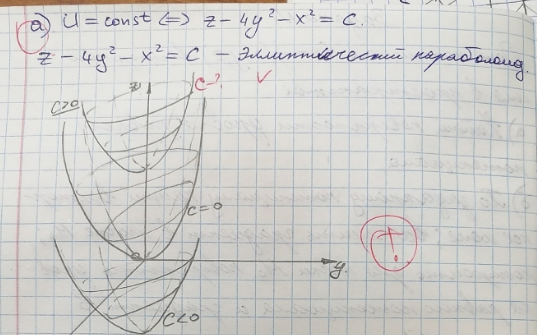 а) U = const <=> z - 4y² - x² = C.
z - 4y² - x² = C - эллиптический параболоид.
z
C-?
C>0
C=0
0
y
C<0